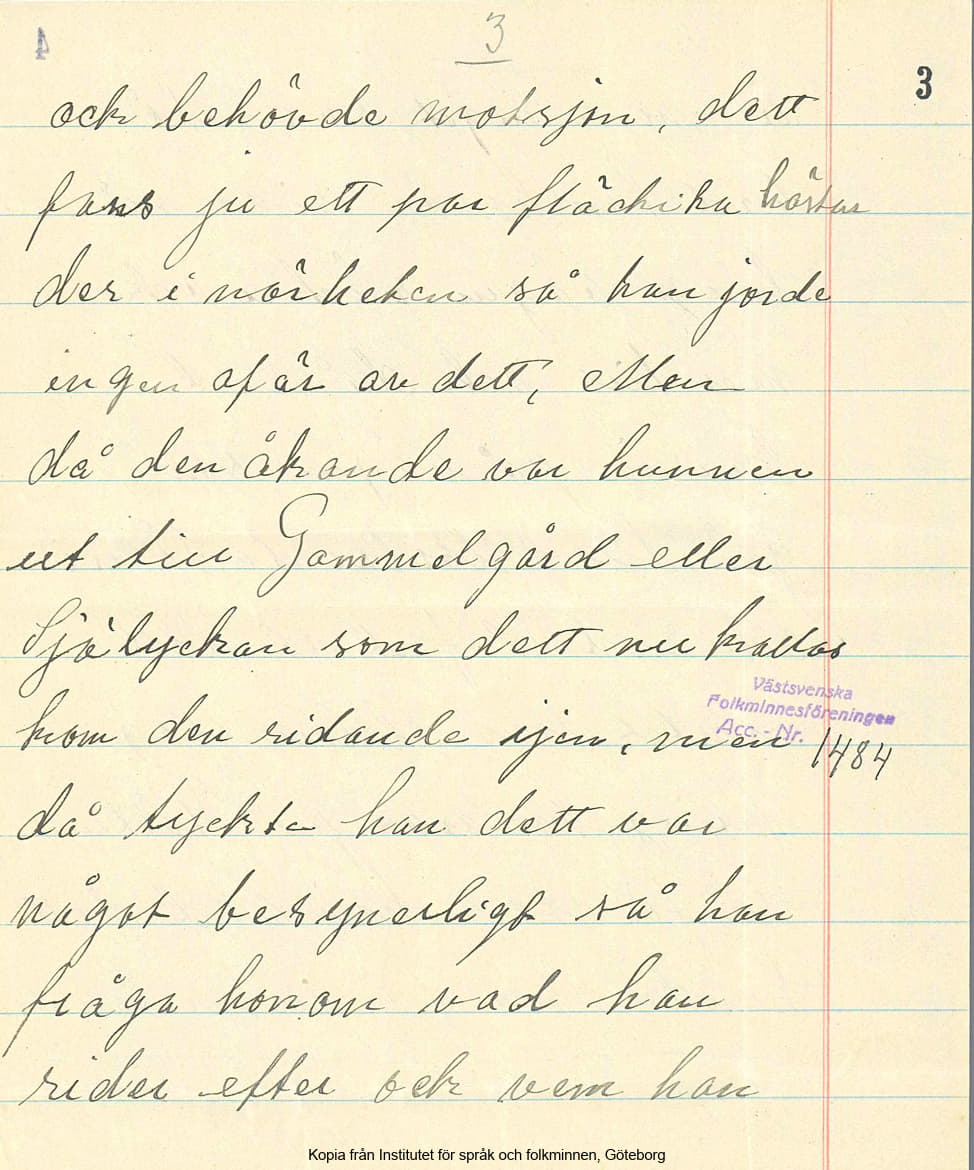 3
3
ock behövde motsjon, dett
fans ju ett par fläckika hästar
der i närheten så han jorde
ingen afär av dett, Men
då den åkande var hunnen
ut till Gammelgård eller
Själyckan som dett nu kallas
kom den ridande ijen, men
Västsvenska
Folkminnesföreningen
Acc. - Nr. 1484
då tyckte han dett var
något besynerligt så han
fråga honom vad han
rider efter ock vem han
Kopia från Institutet för språk och folkminnen, Göteborg